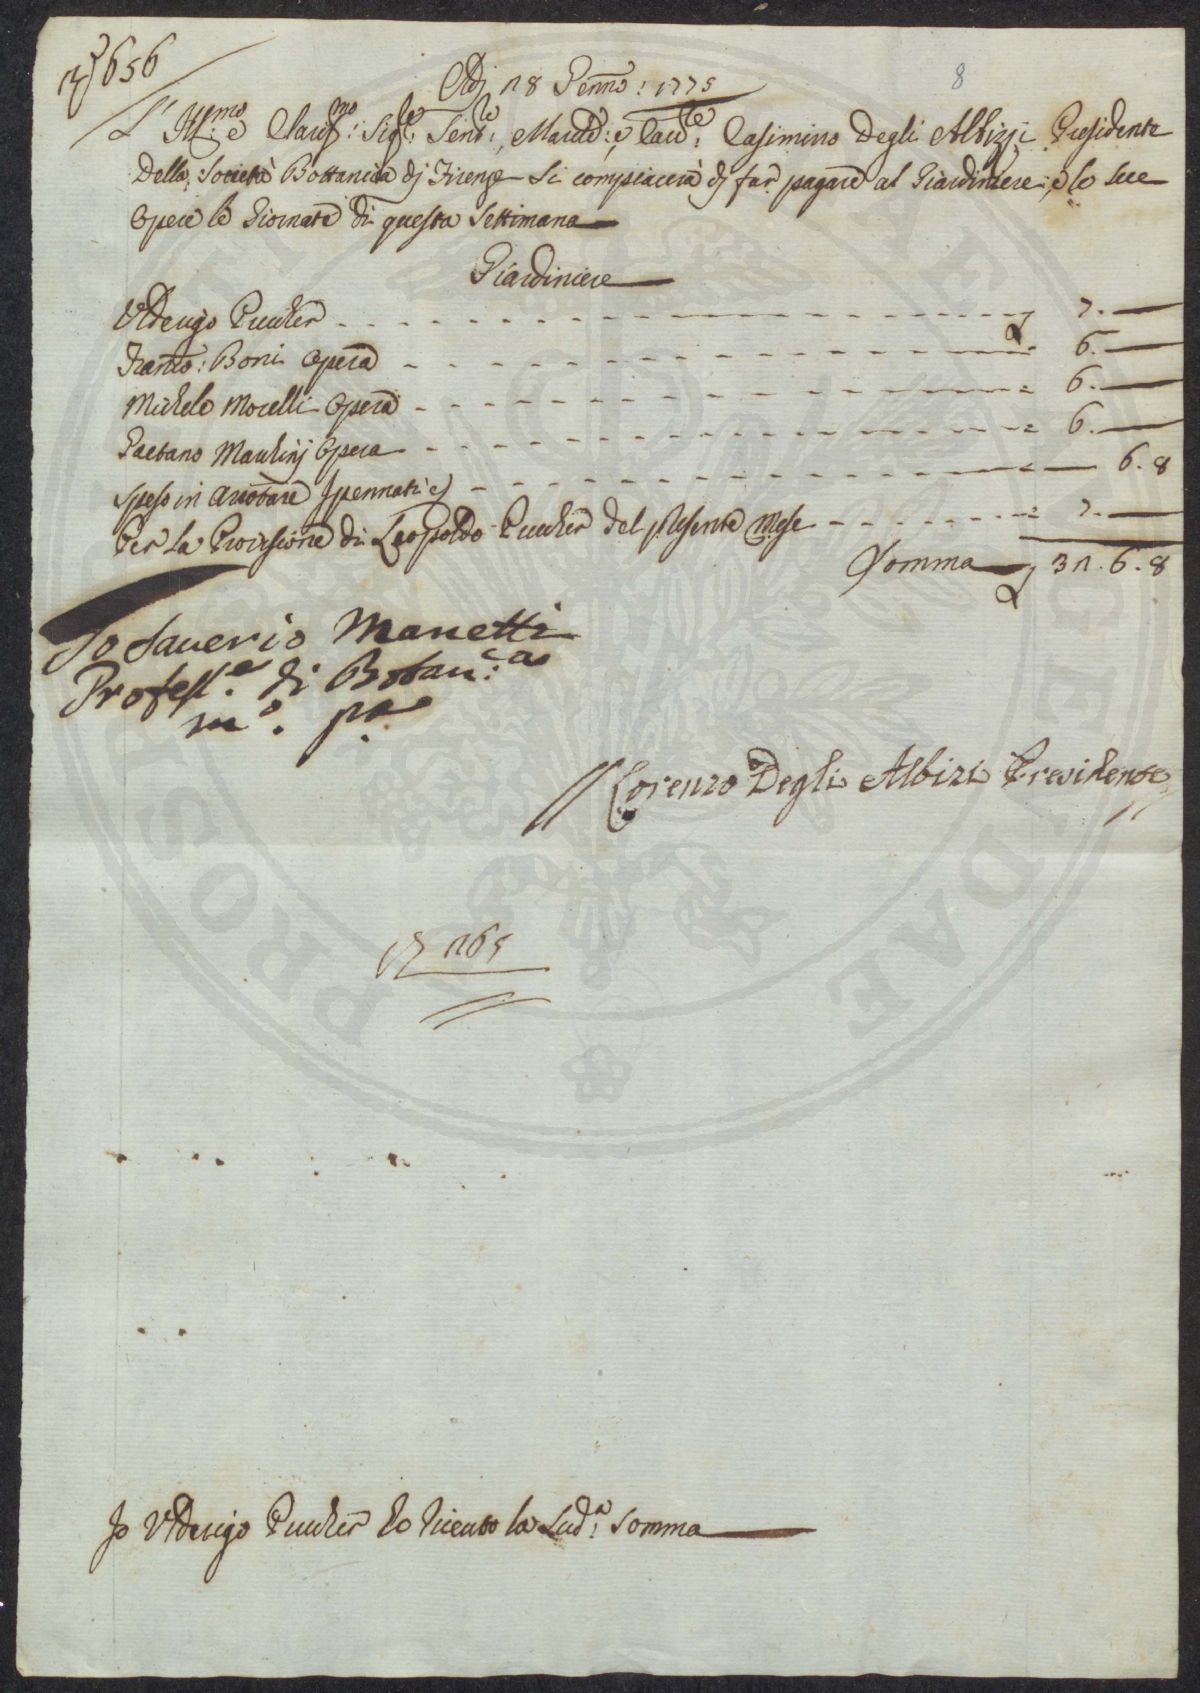 656
8
Adj 18 Genno: 1775
L' Ill:mo e Clariss:mo Sigre: Senre:, March:e, e Cavre: Casimirro Degli Albizzj Presidente
Della Società Bottanica dj Firenze Si compiacerà dj far pagare al Giardiniere, e le sue
Opere le Giornate di questa Settimana
Giardiniere
Ulderigo Prucker 7.
Franco: Boni Opera 6.
Michele Morelli Opera 6.
Gaetano Maulinj Opera 6.
Speso in arrotare Spennati 6.8
Per La Provisione di Leopoldo Prucker del presente Mese 7.
Somma 31.6.8
Io Saverio Manetti
Profess.e di Botan:ca
mo. pa.
Lorenzo Degli Albizi Presidente
1165
PROS
Io Ulderigo Prucker ho riceuto la Sud:a Somma